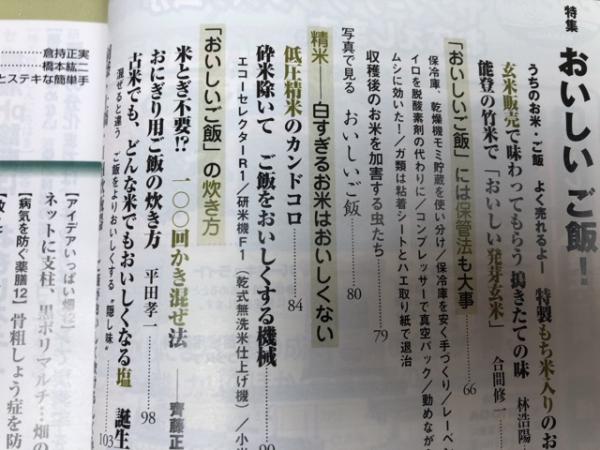 特集 おいしいご飯!
うちのお米・ご飯 よく売れるよー 特製もち米入りのお
玄米販売で味わってもらう 搗きたての味 林浩陽
能登の竹米で「おいしい発芽玄米」 合間修一
「おいしいご飯」には保管法も大事 66
保冷庫、乾燥機モミ貯蔵を使い分け/保冷庫を安く手づくり/レーベ
イロを脱酸素剤の代わりに/コンプレッサーで真空パック/勤めなが
ムシに効いた!/ガ類は粘着シートとハエ取り紙で退治
収穫後のお米を加害する虫たち 79
写真で見る おいしいご飯 80
精米――白すぎるお米はおいしくない
低圧精米のカンドコロ 84
砕米除いて ご飯をおいしくする機械 90
エコーセレクターR1/研米機F1(乾式無洗米仕上げ機)/小
「おいしいご飯」の炊き方
米とぎ不要!? 一〇〇回かき混ぜ法 ――齊藤正
おにぎり用ご飯の炊き方 平田孝一 98
古米でも、どんな米でもおいしくなる塩 誕生
混ぜると違う ご飯をよりおいしくする“隠し味” 103
倉持正実
橋本紘二
とステキな簡単手
【アイデアいっぱい畑12】
ネットに支柱、黒ポリマルチ…畑の
【病気を防ぐ薬膳12】 骨粗しょう症を防